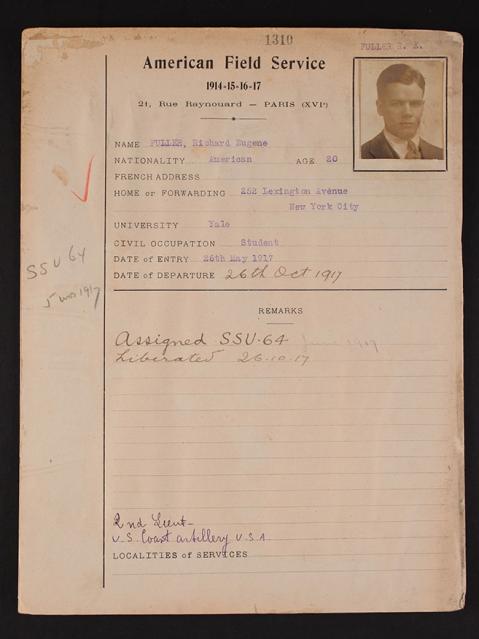 1310
FULLER R. E.
American Field Service
1914-15-16-17
21, Rue Raynouard — PARIS (XVIe)
NAME FULLER, Richard Eugene
NATIONALITY American AGE 20
FRENCH ADDRESS
HOME or FORWARDING 252 Lexington Avenue
New York City
UNIVERSITY Yale
CIVIL OCCUPATION Student
DATE of ENTRY 26th May 1917
DATE of DEPARTURE 26th Oct 1917
SSU 64
5 1917
REMARKS
Assigned SSU-64 June 1917
Liberated 26-10-17
2nd Lieut-
U.S. Coast artillery U.S.A.
LOCALITIES of SERVICES